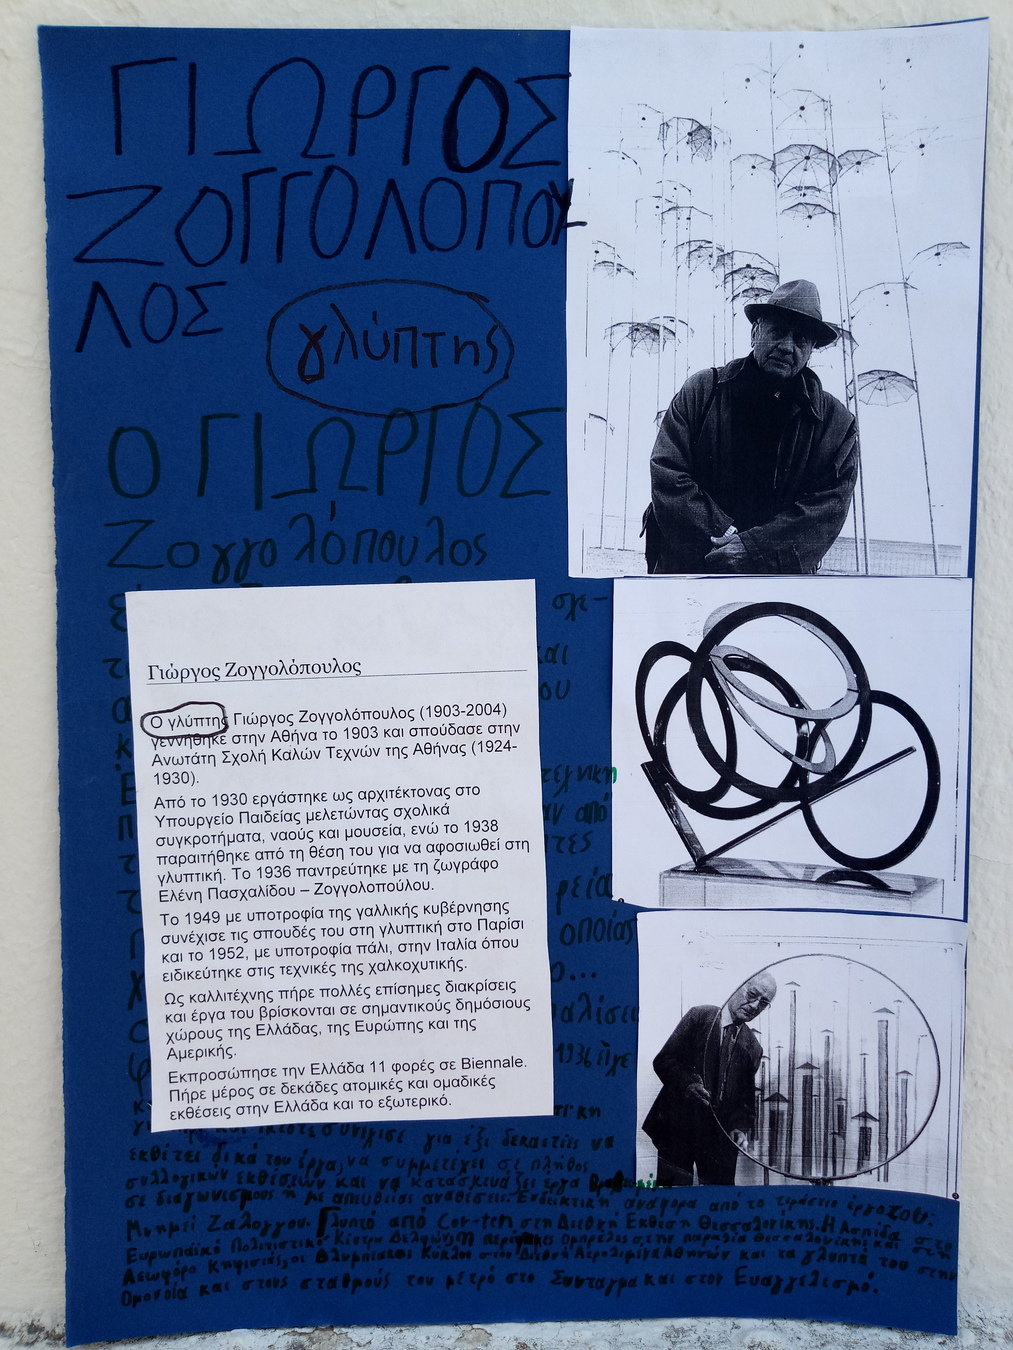 ΓΙΩΡΓΟΣ
ΖΟΓΓΟΛΟΠΟΥ
ΛΟΣ
γλύπτης
Ο ΓΙΩΡΓΟΣ
Ζογγολόπουλος
σχε-
και
ου
τεχνικη
από
τες
ρεία,
οποίας
αλίσει
1936 πήγε
Γιώργος Ζογγολόπουλος
Ο γλύπτης Γιώργος Ζογγολόπουλος (1903-2004)
γεννήθηκε στην Αθήνα το 1903 και σπούδασε στην
Ανωτάτη Σχολή Καλών Τεχνών της Αθήνας (1924-
1930).
Από το 1930 εργάστηκε ως αρχιτέκτονας στο
Υπουργείο Παιδείας μελετώντας σχολικά
συγκροτήματα, ναούς και μουσεία, ενώ το 1938
παραιτήθηκε από τη θέση του για να αφοσιωθεί στη
γλυπτική. Το 1936 παντρεύτηκε με τη ζωγράφο
Ελένη Πασχαλίδου – Ζογγολοπούλου.
Το 1949 με υποτροφία της γαλλικής κυβέρνησης
συνέχισε τις σπουδές του στη γλυπτική στο Παρίσι
και το 1952, με υποτροφία πάλι, στην Ιταλία όπου
ειδικεύτηκε στις τεχνικές της χαλκοχυτικής.
Ως καλλιτέχνης πήρε πολλές επίσημες διακρίσεις
και έργα του βρίσκονται σε σημαντικούς δημόσιους
χώρους της Ελλάδας, της Ευρώπης και της
Αμερικής.
Εκπροσώπησε την Ελλάδα 11 φορές σε Biennale.
Πήρε μέρος σε δεκάδες ατομικές και ομαδικές
εκθέσεις στην Ελλάδα και το εξωτερικό.
συνέχισε για έξι δεκαετίες να
εκθέτει δικά του έργα, να συμμετέχει σε πλήθος
συλλογικών εκθέσεων και να κατασκευάζει έργα
σε διαγωνισμούς ή με απευθείας αναθέσεις. Ενδεικτική αναφορά από το τεράστιο έργο του:
Μνημεί Ζαλόγγου. Γλυπτό από Cor-ten στη Διεθνή Έκθεση Θεσσαλονίκης. Η Ασπίδα στο
Ευρωπαϊκό Πολιτιστικό Κέντρο Δελφών, Ομπρέλες στην παραλία Θεσσαλονίκης και στη
Λεωφόρο Κηφισιάς, οι Ολυμπιακοί Κύκλοι στο Διεθνή Αερολιμένα Αθηνών και τα γλυπτά του στην
Ομόνοια και στους σταθμούς του μετρό στο Σύνταγμα και στον Ευαγγελισμό.